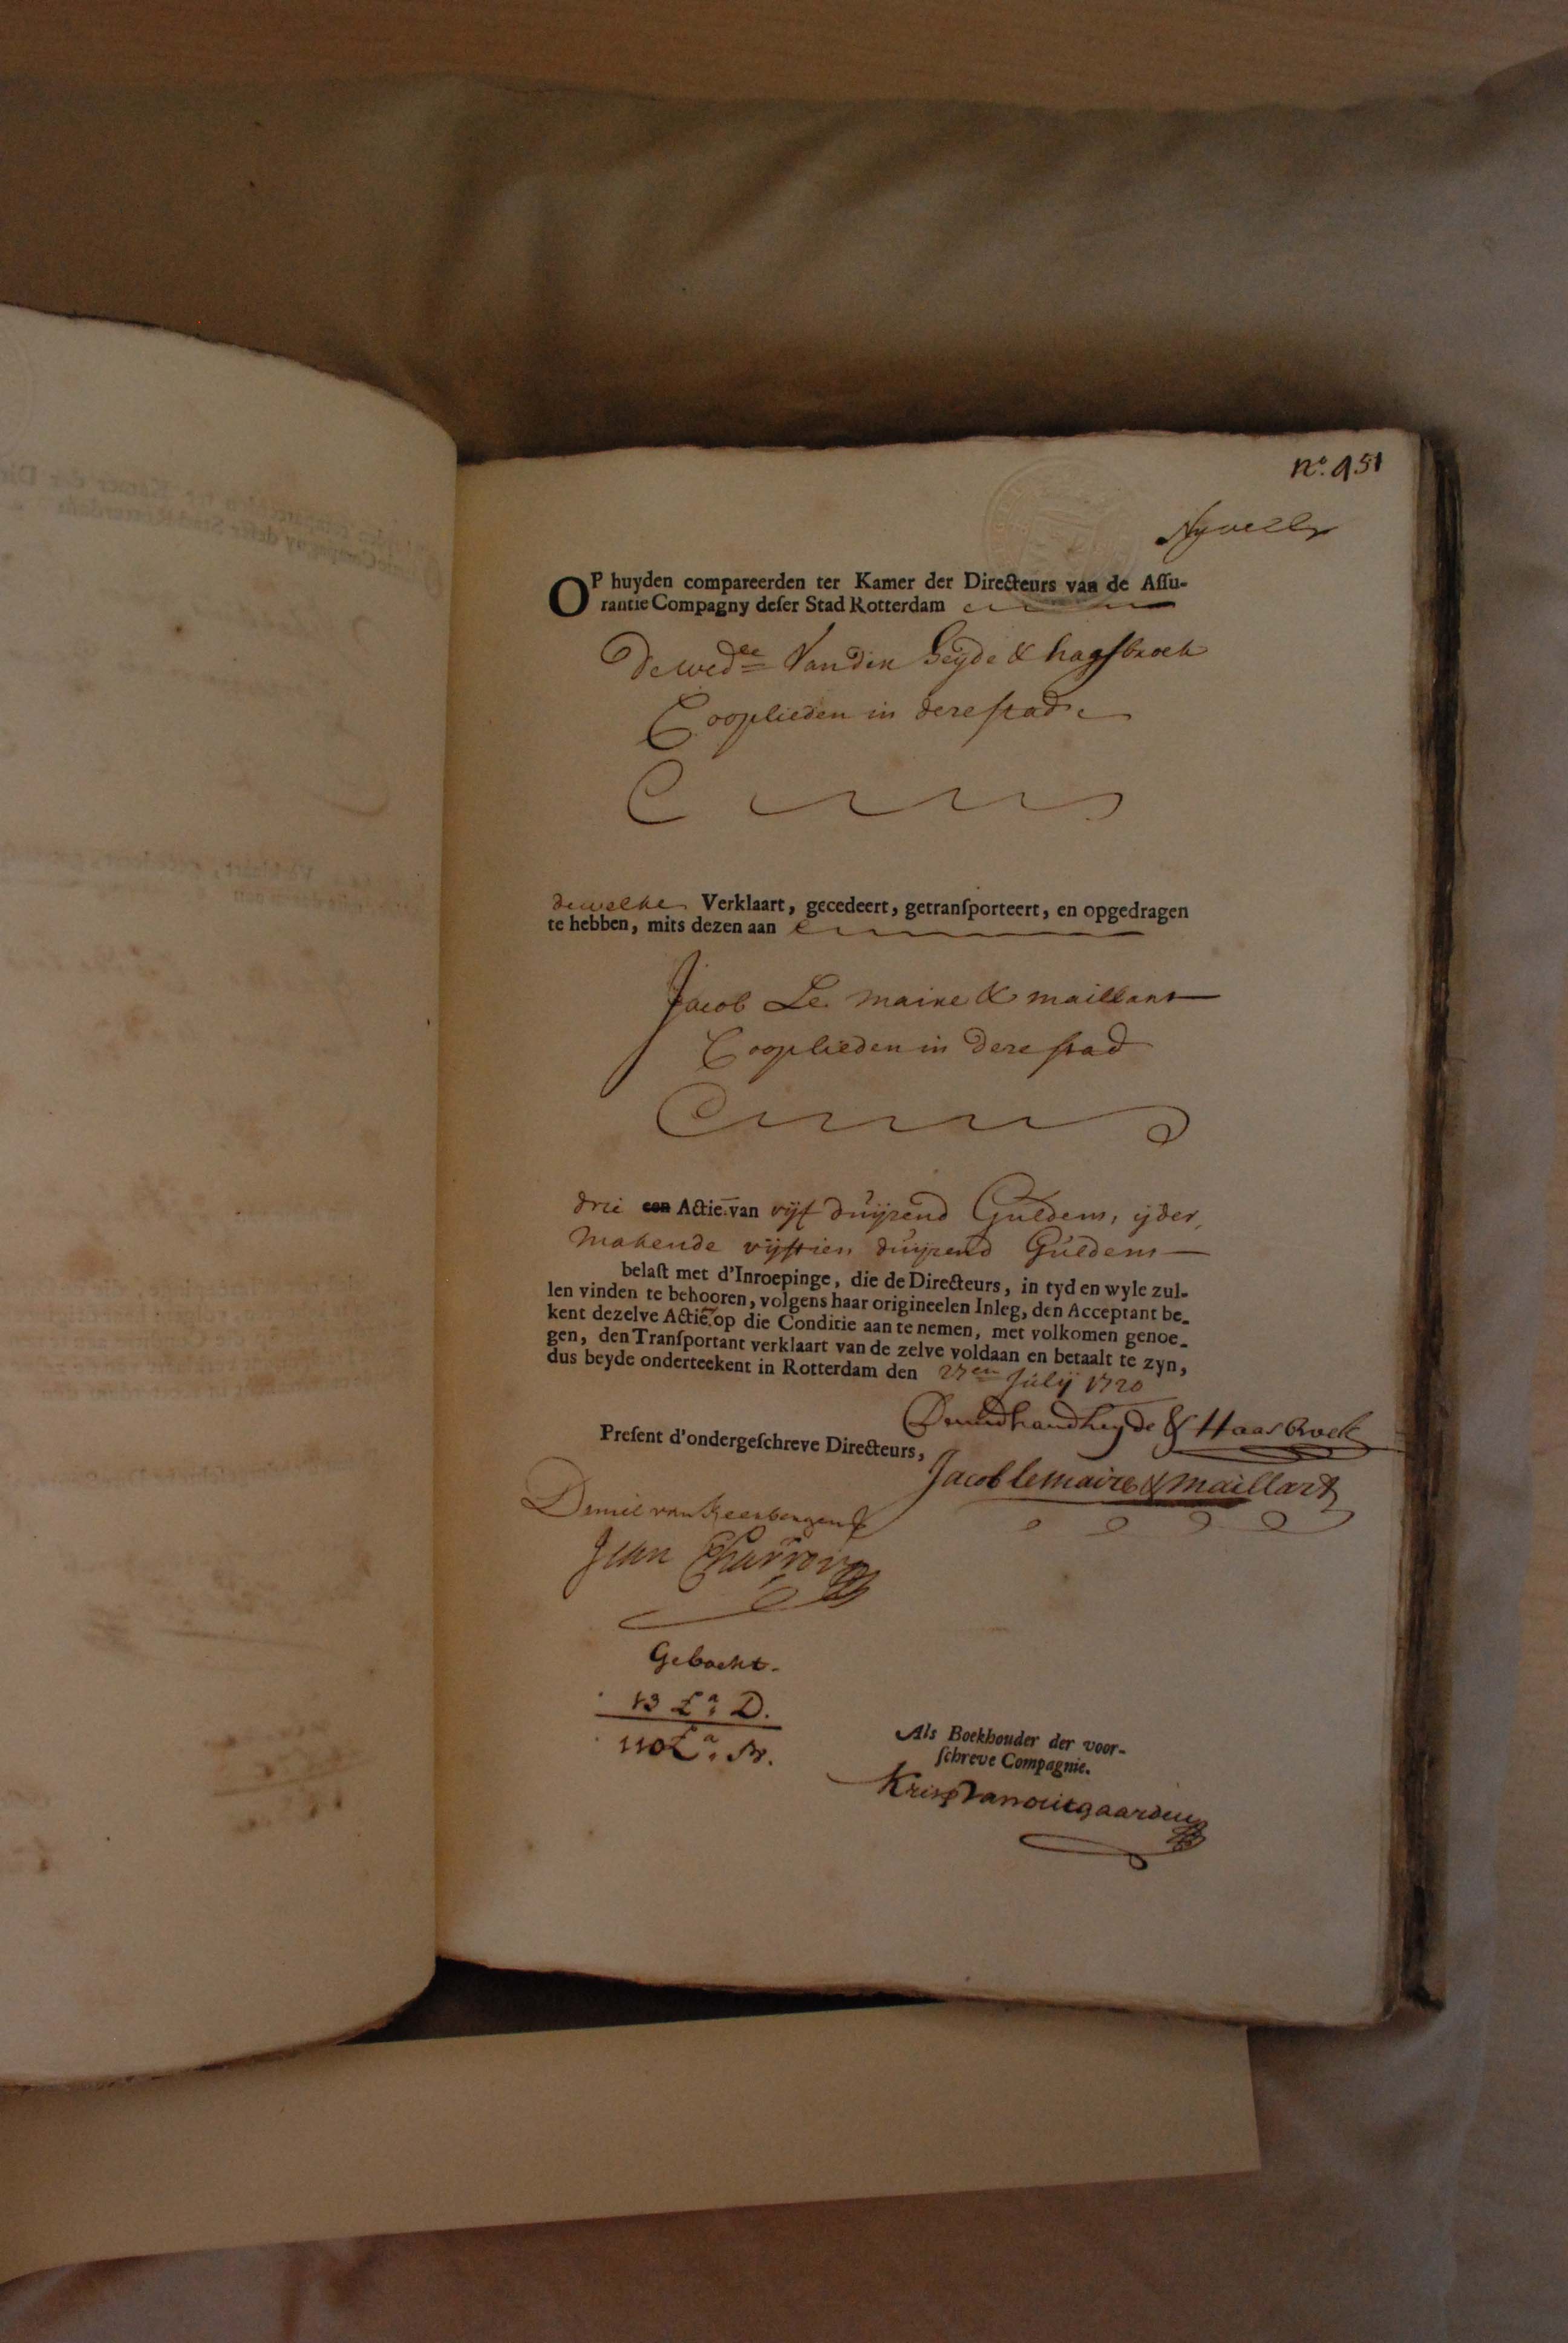 no. 951
OP huyden compareerden ter Kamer der Directeurs van de Assu-
rantie Compagny deser Stad Rotterdam
De wed.ee Vanden heijde & hagsbroek
Cooplieden in dere stad
dewelke Verklaart, gecedeert, getransporteert, en opgedragen
te hebben, mits dezen aan
Jacob Le maire & maillart
Cooplieden in dere stad
drie een Actie. van vijf duijzend Guldens, ijder,
makende vijftien duijzend Guldens
belast met d'Inroepinge, die de Directeurs, in tyd en wyle zul-
len vinden te behooren, volgens haar origineelen Inleg, den Acceptant be-
kent dezelve Actie op die Conditie aan te nemen, met volkomen genoe-
gen, den Transportant verklaart van de zelve voldaan en betaalt te zyn,
dus beyde onderteekent in Rotterdam den 27en Julij 1720
& Haasbroek
Present d'ondergeschreve Directeurs,
Jacob lemaire & maillart
Daniel van Keerbergen
Jean Charron
Geboekt.
13 La. D.
110 La.
Als Boekhouder der voor-
schreve Compagnie.
Krisp Vanouitgaarden